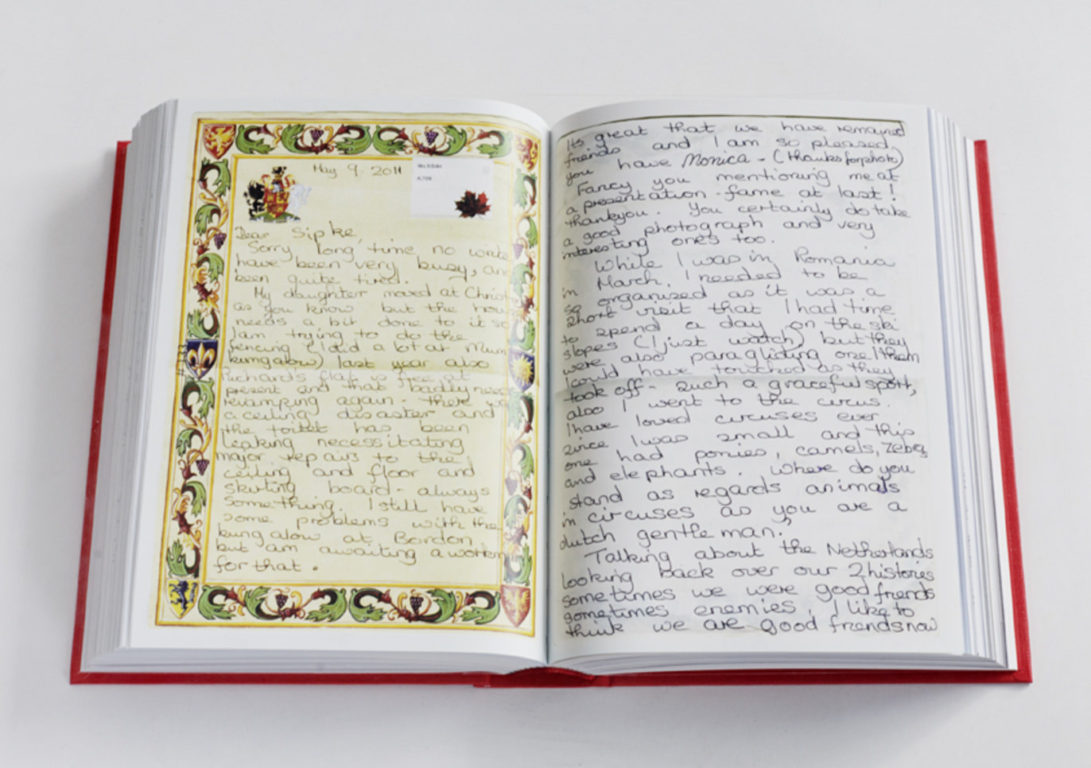 May 9. 2011
Dear Sipke,
Sorry long time no write
have been very busy, and
been quite tired.
My daughter moved at Christ
as you know but the hou
needs a bit done to it so
I am trying to do the
fencing (I did a lot at Mum
bungalow) last year also
Richards flat is free at
present and that bad need
revamping again - there
a ceiling disaster and
the toilet has been
leaking necessitating
major repairs to the
ceiling and floor and
skirting board - always
something. I still have
some problems with the
bungalow at Bordon
but am awaiting a workm
for that.
Its great that we have remained
friends and I am so pleased
you have Monica - (thanks for photo)
Fancy you mentioning me at
a presentation - fame at last!
thankyou. You certainly do take
a good photograph and very
interesting ones too.
While I was in Romania
in March, I needed to be
so organised as it was a
short visit that I had time
to spend a day on the ski
slopes (I just watch) but they
were also paragliding one I them
I could have touched as they
took off - such a graceful sport,
also I went to the circus.
I have loved circuses ever
since I was small and this
one had ponies, camels, Zebras
and elephants. Where do you
stand as regards animals
in circuses as you are a
dutch gentleman?
Talking about the Netherlands
looking back over our 2 histories
sometimes we were good friends
sometimes enemies, I like to
think we are good friends now